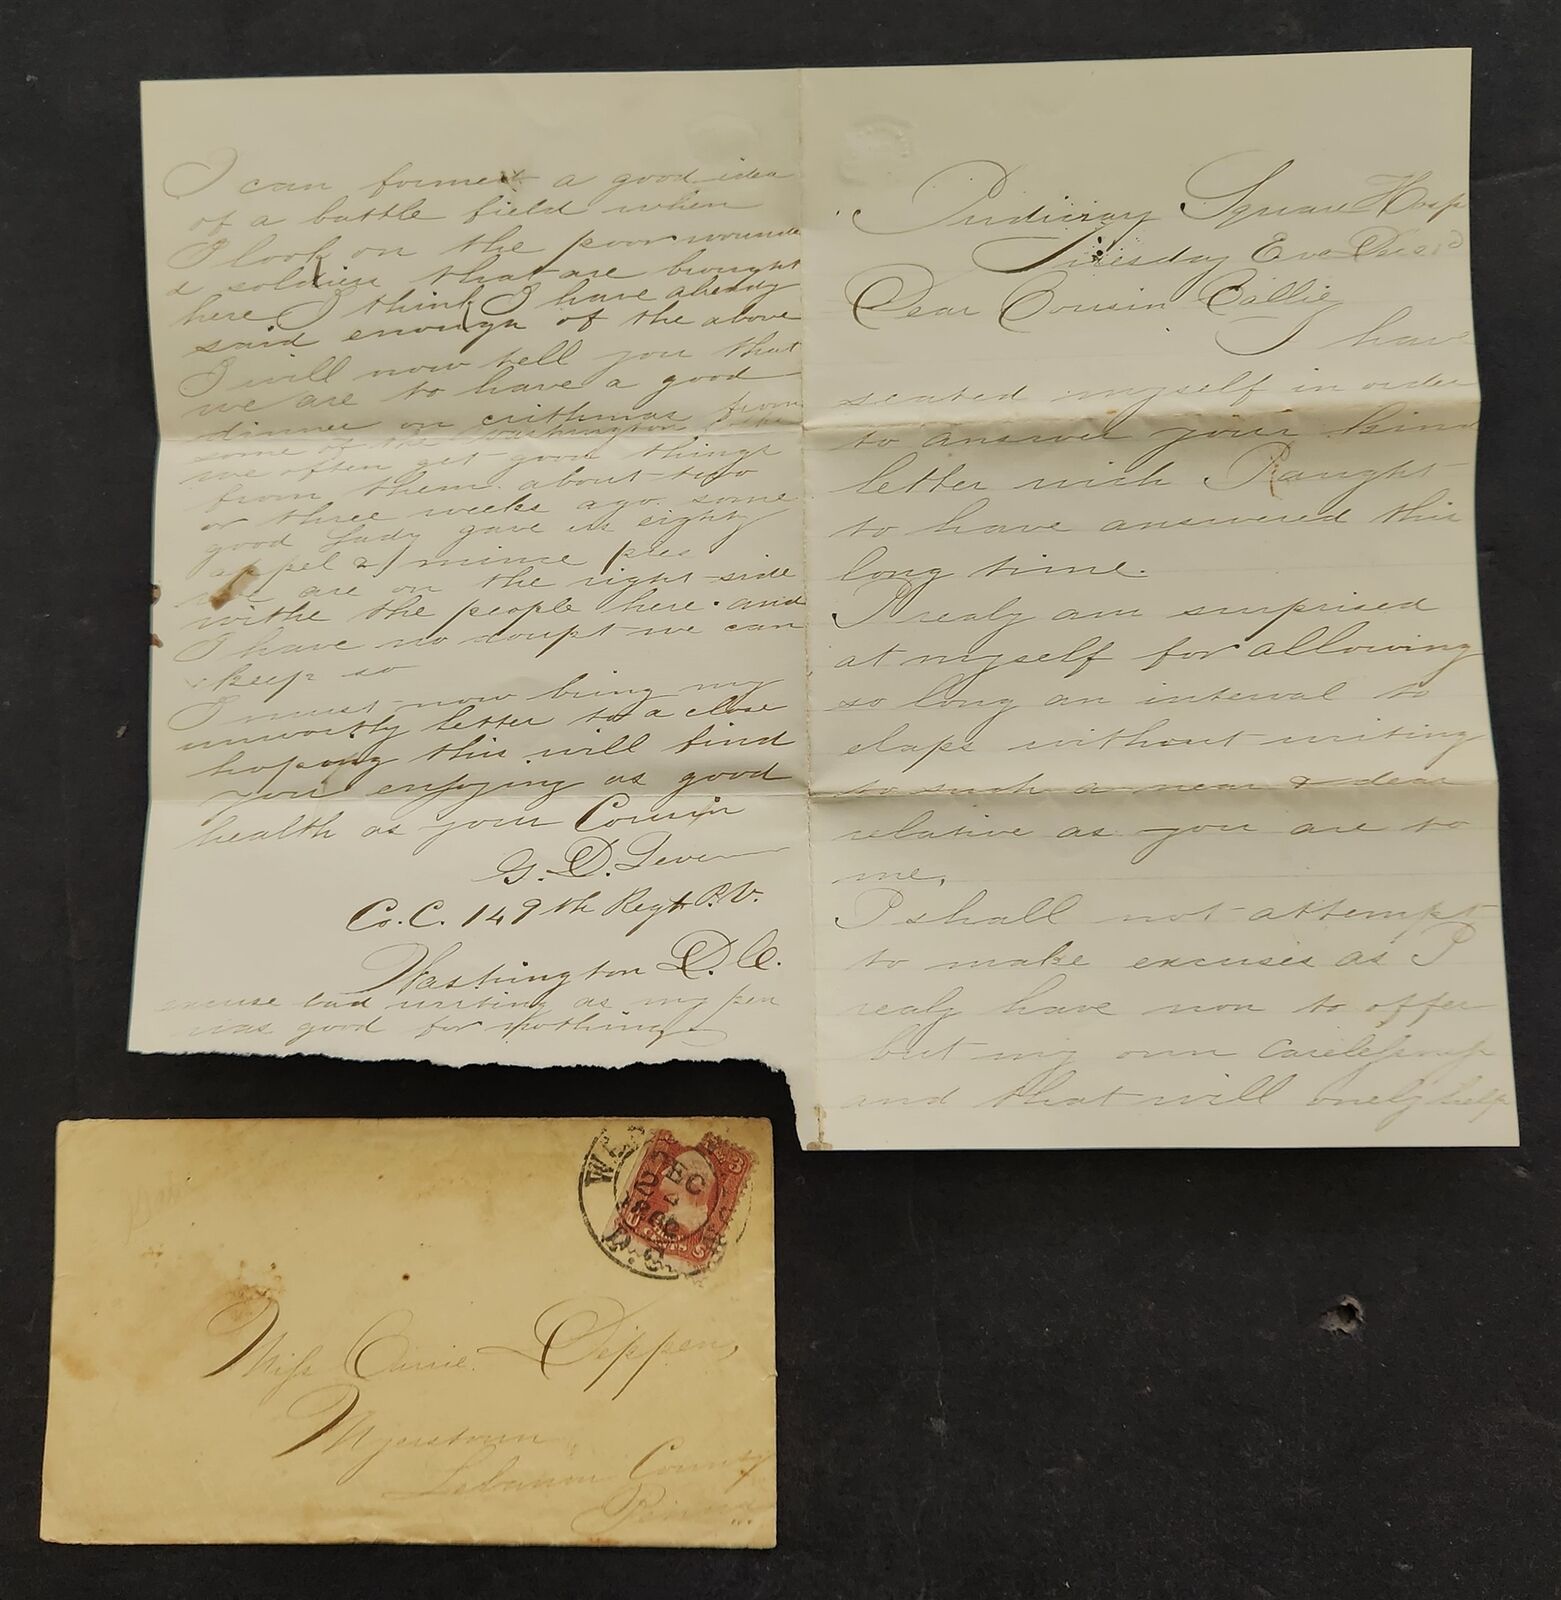 Judiciary Square Hosp
Tuesday Eve Dec
Dear Cousin Callie
I have
seated myself in order
to answer your kind
letter wich I aught
to have answered this
long time.
I realy am surprised
at myself for allowing
so long an interval to
elaps without writing
to such a near & dear
relative as you are to
me,
I shall not attempt
to make excuses as I
realy have non to offer
but my own Carelessness
and that will onely help
I can form a good idea
of a battle field when
I look on the poor wounde
d soldiers that are brought
here I think I have already
said enough of the above
I will now tell you that
we are to have a good
dinner on crithmas from
some of the Washington
we often get good things
from them. about two
or three weeks ago some
good Lady gave us eighty
appel & mince pies
we are on the right side
withe the people here. and
I have no doupt we can
keep so
I must now bring my
unworthy letter to a close
hoping this will find
you enjoying as good
health as your Cousin
G. D. Lever
Co. C. 149th Regt P.V.
Washington D.C.
excuse bad writing as my pen
was good for nothing
DEC
D.C.
3
CENTS
Miss Carrie Dippen,
Myerstown
Lebanon County
Penna